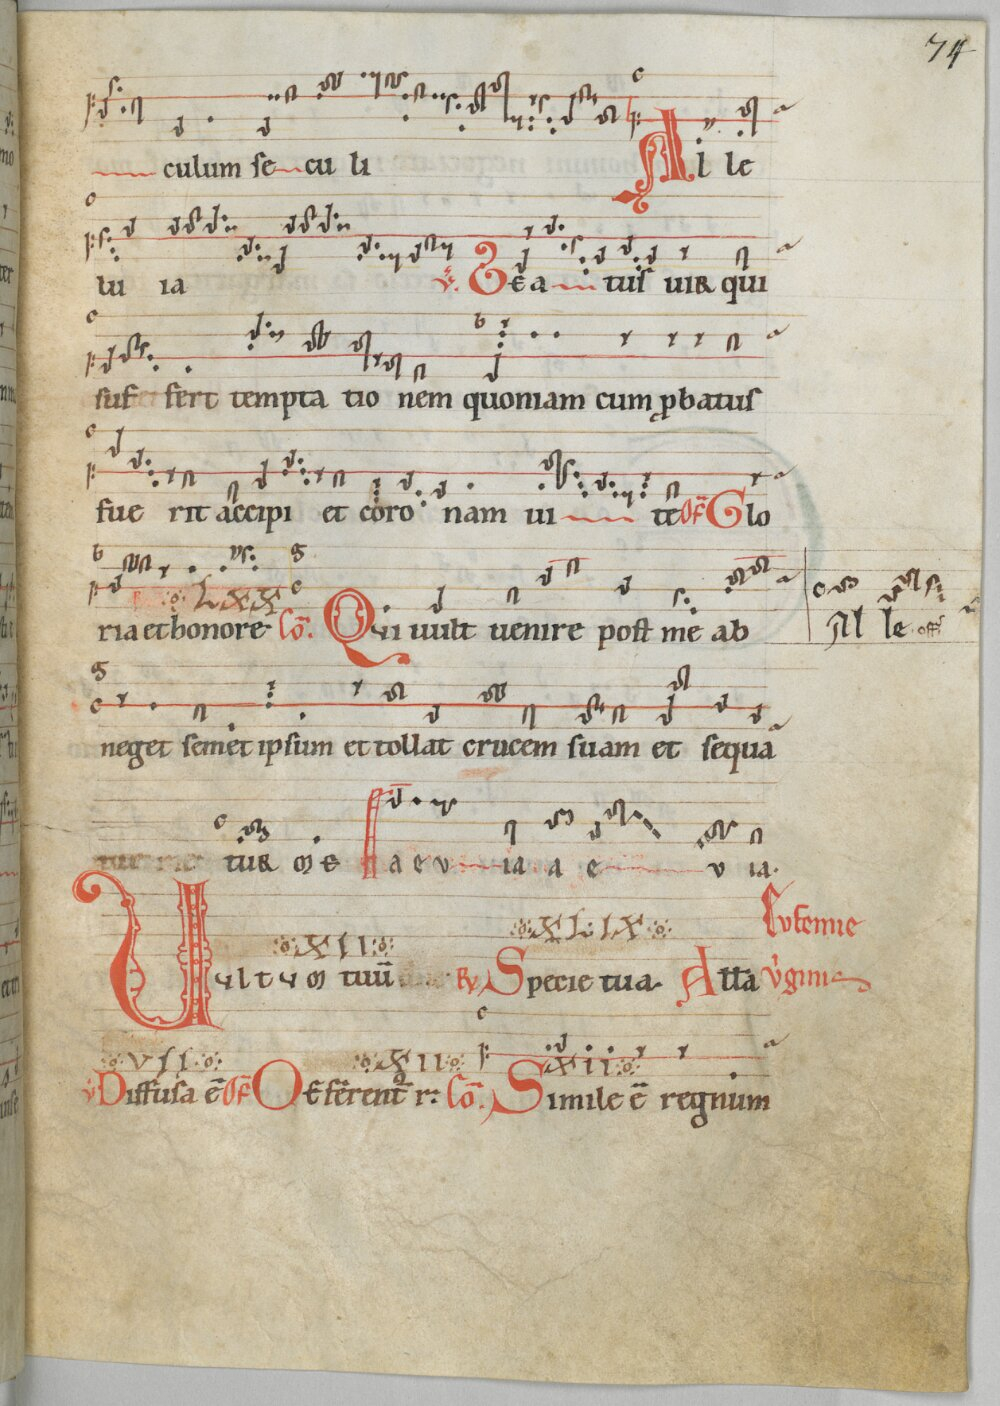 74
culum se cu li Al le
lu ia ℣. Bea tus uir qui
suf fert tempta tio nem quoniam cum ꝓbatus
fue rit accipi et coro nam ui te Of̄ Glo
LXX
ria et honore Cō. Qui uult uenire post me ab
Al le
neget semet ipsum et tollat crucem suam et sequa
tur me aeu ia a e u ia.
XII XLIX
Uultum tuū ℟ Specie tua. Alla v̓gini
VII XII XII
Diffusa ē Of̄ Offerent̄ r: Cō. Simile ē regnum